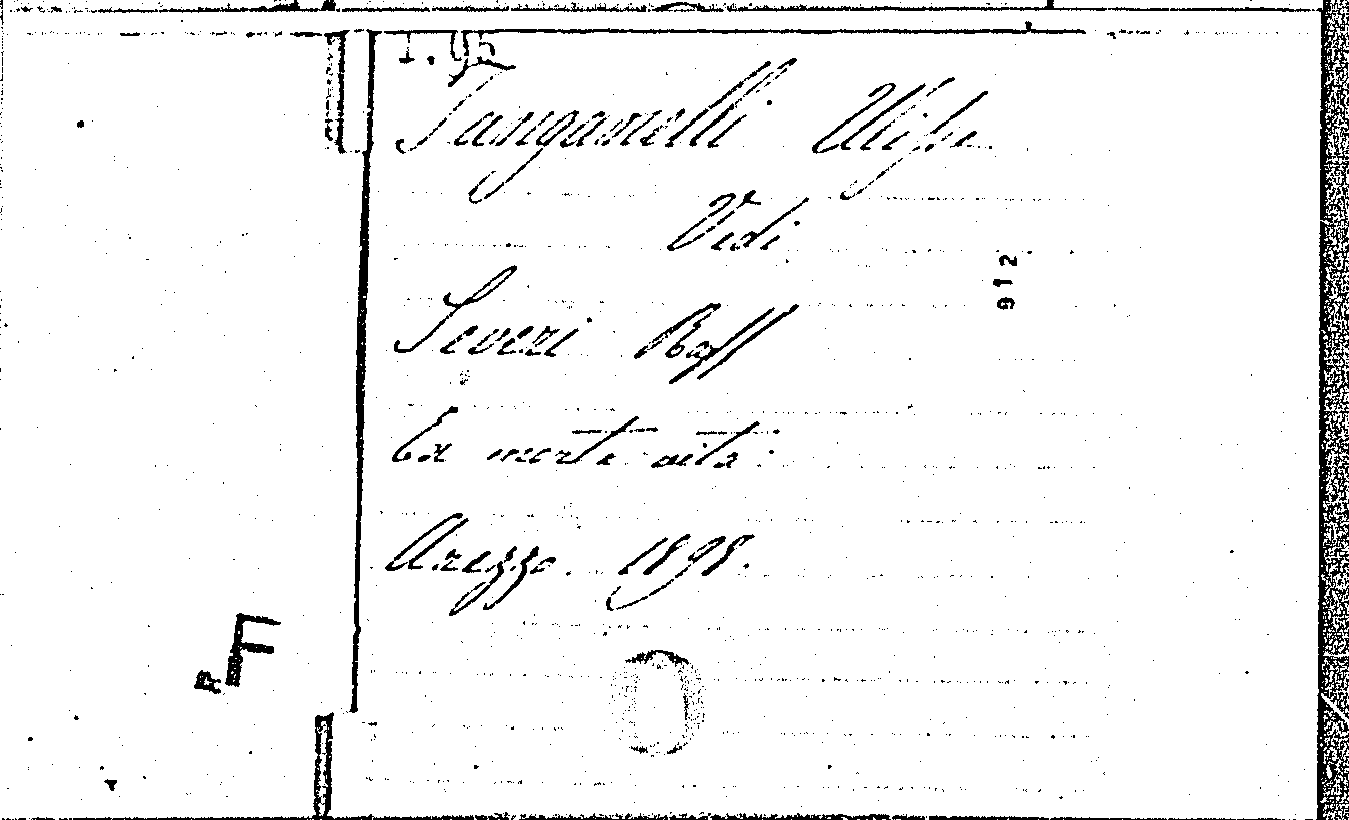 I. 95
Tanganelli Ulisse
Vedi
Severi Raff
Ex morte vita
Arezzo. 1898.
912
F